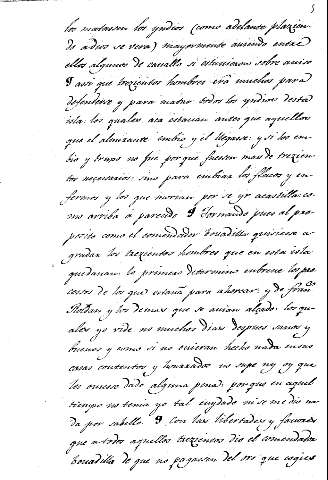 5
los matassen los yndios (como adelante plazien-
do a dios se vera) mayormente aviendo entre
ellos algunos de cavallo si estuvieran sobre aviso
¶ assi que trezientos hombres erā muchos para
defenderse y para matar todos los yndios desta
isla los quales aca estavan antes que aquellos
que el almirante embio y el llegase: y si los em-
bio y truxo no fue porque fuesen mas de trezien-
tos necesarios: sino para embiar los flacos y en-
fermos y los que morian por se yr a castilla: co-
mo arriba a parecido ¶ Tornando pues al pro-
posito como el comendador bouadilla quisiese a-
gradar los trezientos hombres que en esta isla
quedauan lo primero determino en breve los pro-
cesos de los que estauā para ahorcar: y de franco
Roldan y los demas que se auian alçado: los qu-
ales yo vide no muchos dias despues sanos y
buenos y como si no ovieran hecho nada en sus
casas contentos y honrrados no supe ny oy que
les oviese dado alguna pena: porque en aquel
tiempo no tenia yo tal cuydado ni se me dio na-
da por sabello. ¶ Con las libertades y favores
que a todos aquellos trezientos dio el comendador
bouadilla de que no pagasen del oro que cogiese